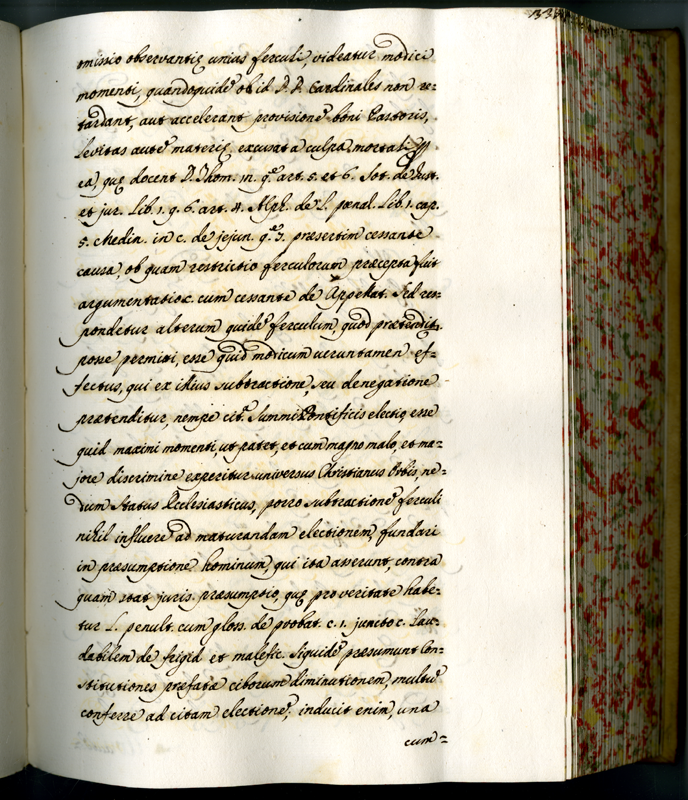 133
omissio observantię unius ferculi, videatur modici
momenti, quandoquidẽ ob id D.D. Cardinales non re=
tardant, aut accelerant provisionẽ boni Pastoris,
levitas autẽ materię excusat a culpa mortali
ea, quę docent D. Thom. in q. art. 5. et 6. Sot. de Just.
et jur. Lib. 1. q. 6. art. 4. Alph. de L. pœnal. Lib. 1. cap.
5. Medin. in c. de jejun. q. 7. præsertim cessante
causa, ob quam restrictio ferculorum præcepta fuit
argumentatio c. cum cessante de Appellat. Sed res=
pondetur alterum quidẽ ferculum, quod prætenditur
posse permitti, esse quid modicum veruntamen ef=
fectus, qui ex illius subtractione, seu denegatione
prætenditur, nempe cit. Summi Pontificis electio, esse
quid maximi momenti, ut patet, et cum magno malo, et ma=
jore discrimine experitur universus Christianus Orbis, ne=
dum Status Ecclesiasticus, porro subtractionẽ ferculi
nihil influere ad maturandam electionem, fundari
in præsumptione hominum, qui ita asserunt, contra
quam stat juris præsumptio, quę pro veritate habe=
tur L. penult. cum gloss. de probat. c. 1. juncto c. Lau=
dabilem de frigid. et malefic. Siquidẽ præsumunt Con=
stitutiones præfatæ ciborum diminutionem, multũ
conferre ad citam electionẽ, inducit enim, una
cum=